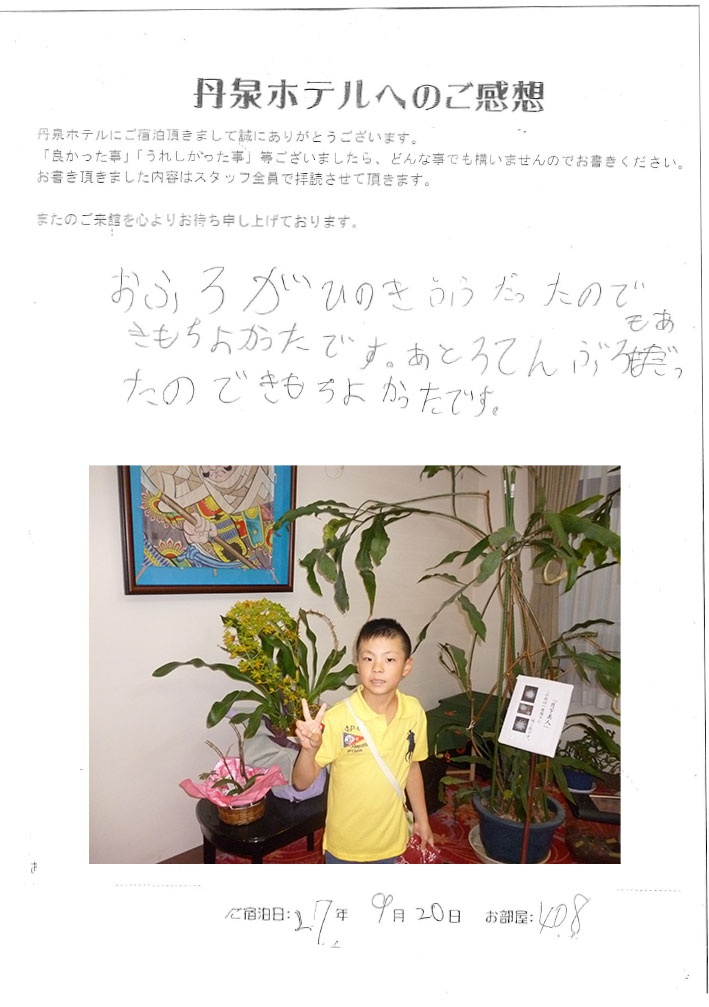 丹泉ホテルへのご感想
丹泉ホテルにご宿泊頂きまして誠にありがとうございます。
「良かった事」「うれしかった事」等ございましたら、どんな事でも構いませんのでお書きください。
お書き頂きました内容はスタッフ全員で拝読させて頂きます。
またのご来館を心よりお待ち申し上げております。
おふろがひのきぶろだったので
きもちよかったです。あとろてんぶろもあ
ったのできもちよかったです。
「月下美人」
ご宿泊日:27年 9月20日 お部屋:408